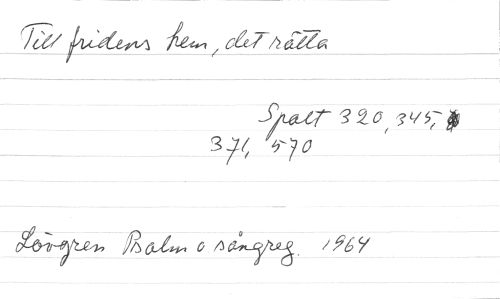 Till fridens hem, det rätta
Spalt 320, 345,
371, 570
Lövgren Psalm o sångreg. 1964